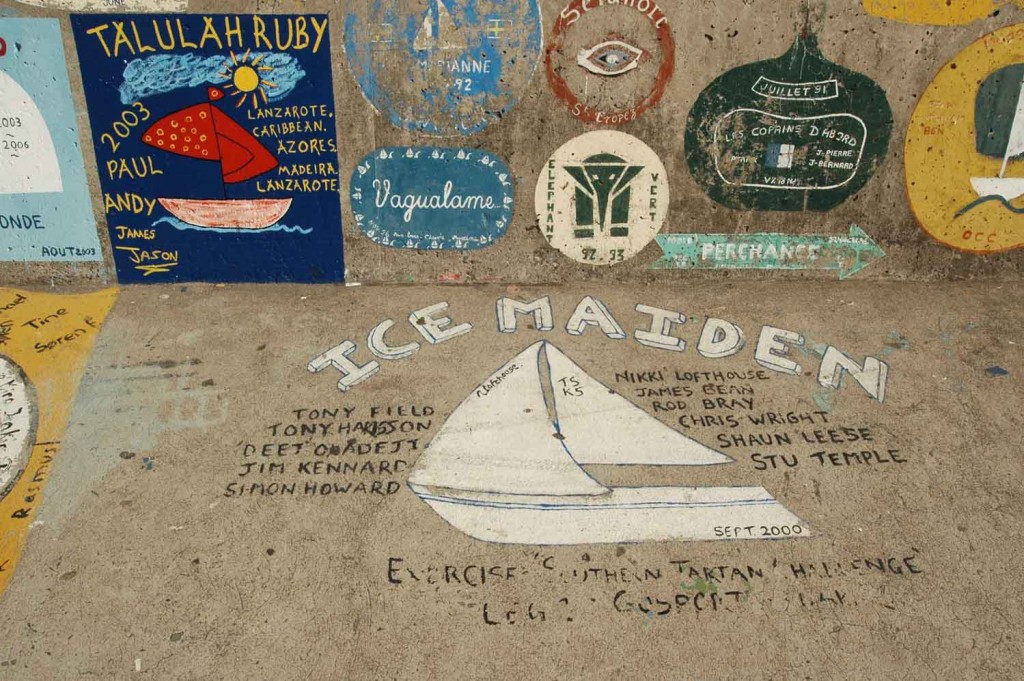 JUNE
TALULAH RUBY
2003
PAUL
ANDY
JAMES
JASON
LANZAROTE.
CARIBBEAN.
AZORES.
MADEIRA.
LANZAROTE.
2003
2006
ONDE
AOUT 2003
92
Vagualame
St Tropez
ELEPHANT
VERT
92.93
JUILLET 91
LES COPAINS D'ABORD
J. PIERRE
J. BERNARD
PERCHANCE
BEN
OCC
Tine
Soren F
Rasmus
ICE MAIDEN
TS
K5
TONY FIELD
TONY HARISSON
JIM KENNARD
SIMON HOWARD
NIKKI LOFTHOUSE
JAMES BEAN
ROD BRAY
CHRIS WRIGHT
SHAUN LEESE
STU TEMPLE
SEPT. 2000
EXERCISE "SOUTHERN TARTAN CHALLENGE"
LEG GOSPORT